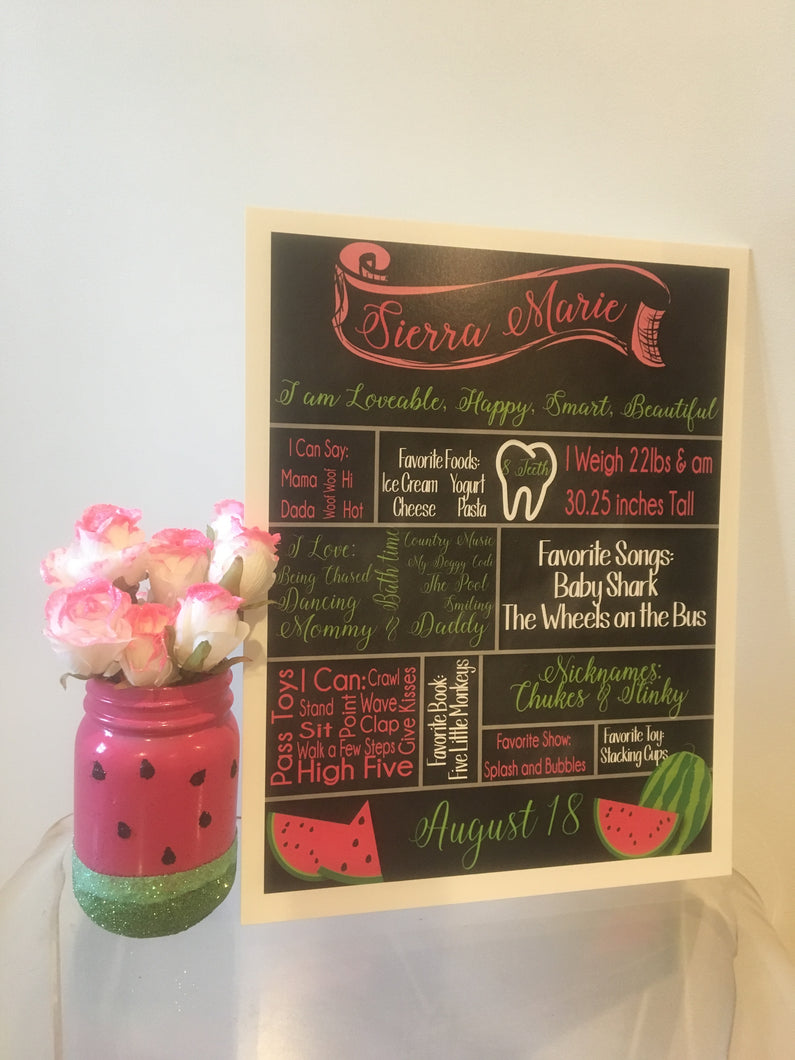 Sierra Marie
I am Loveable, Happy, Smart, Beautiful
I Can Say:
Mama
Dada
Woof Woof
Hi
Hot
Favorite Foods:
Ice Cream Yogurt
Cheese Pasta
8 Teeth
I Weigh 22lbs & am
30.25 inches Tall
I Love:
Being Chased
Dancing
Bath time
Country Music
My Doggy Codi
The Pool
Smiling
Mommy & Daddy
Favorite Songs:
Baby Shark
The Wheels on the Bus
Pass Toys
I Can: Crawl
Stand
Sit
Point
Wave
Clap
Give Kisses
Walk a Few Steps
High Five
Favorite Book:
Five Little Monkeys
Nicknames:
Chukes & Stinky
Favorite Show:
Splash and Bubbles
Favorite Toy:
Stacking Cups
August 18